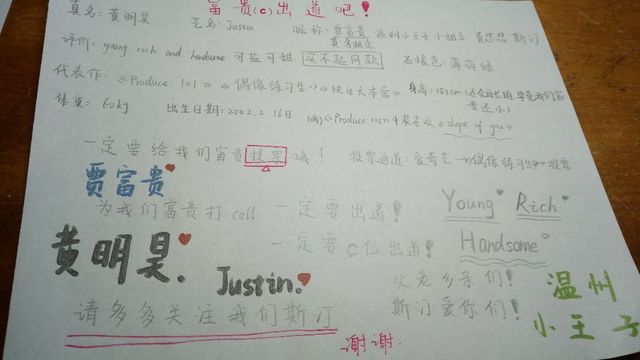 富贵(C)出道吧!
真名:黄明昊 艺名:Justin 昵称:贾富贵 温州小王子 小甜豆 贾悠悠 斯汀
评价:young rich and handsome 可盐可甜 买不起同款 应援色:薄荷绿
代表作:《Produce 101》《偶像练习生》《快乐大本营》 身高:181cm(还会再长的,毕竟我们富贵还小)
体重:60kg 出生日期:2002.2.16日 《Produce 101》中最喜欢《shape of you》
一定要给我们富贵投票哦! 投票通道:爱奇艺→《偶像练习生》投票
贾富贵
为我们富贵打call 一定要出道!
Young Rich
一定要C位出道!
Handsome
黄明昊. Justin.
父老乡亲们!
请多多关注我们斯汀
斯汀爱你们!
温州
小王子
谢谢.